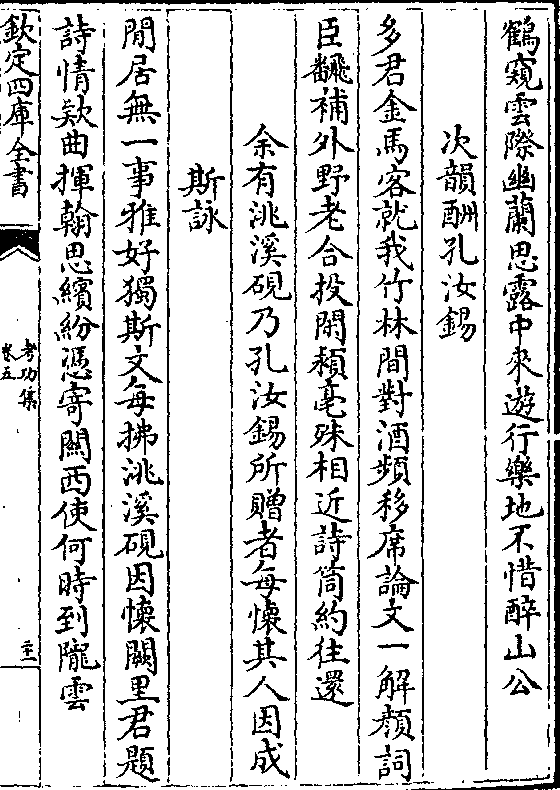 鶴窺雲際幽蘭思露中來遊行樂地不惜醉山公
次韻酬孔汝錫
多君金馬客就我竹林間對酒頻移席論文一解顏詞
臣翻補外野老合投閑潁亳殊相近詩筒約往還
余有洮溪硯乃孔汝錫所贈者每懷其人因成
斯詠
閒居無一事雅好獨斯文每拂洮溪硯因懷闕里君題
詩情欵曲揮翰思繽紛憑寄關西使何時到隴雲
欽定四庫全書
考功集
卷五
二十一